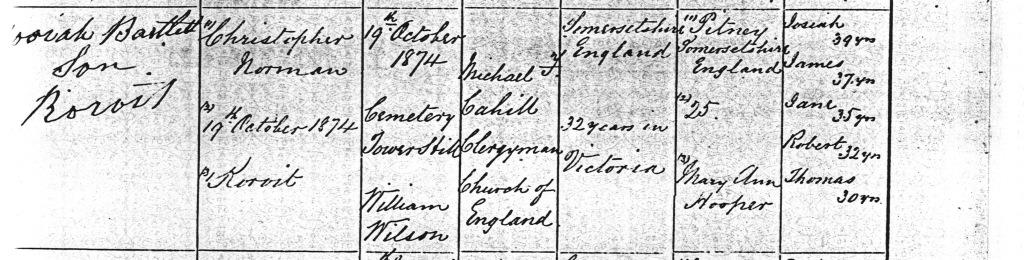 Josiah Bartlett
Son.
Koroit
(1) Christopher
Norman
(2)
19th October 1874
(3) Koroit
19th October
1874
Cemetery
Tower Hill
William
Wilson
Michael F.
Cahill
Clergyman
Church of
England
Somersetshire
England
32 years in
Victoria
(1) Pitney
Somersetshire
England
(2) 25.
(3)
Mary Ann
Hooper
Josiah
39 yrs
James
37 yrs
Jane
35 yrs
Robert 32 yrs
Thomas
30 yrs